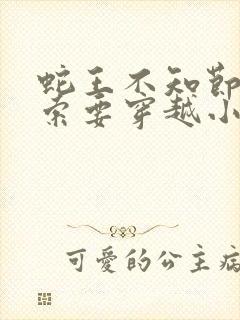 蛇王不知節
索要穿越小
可愛的公主病